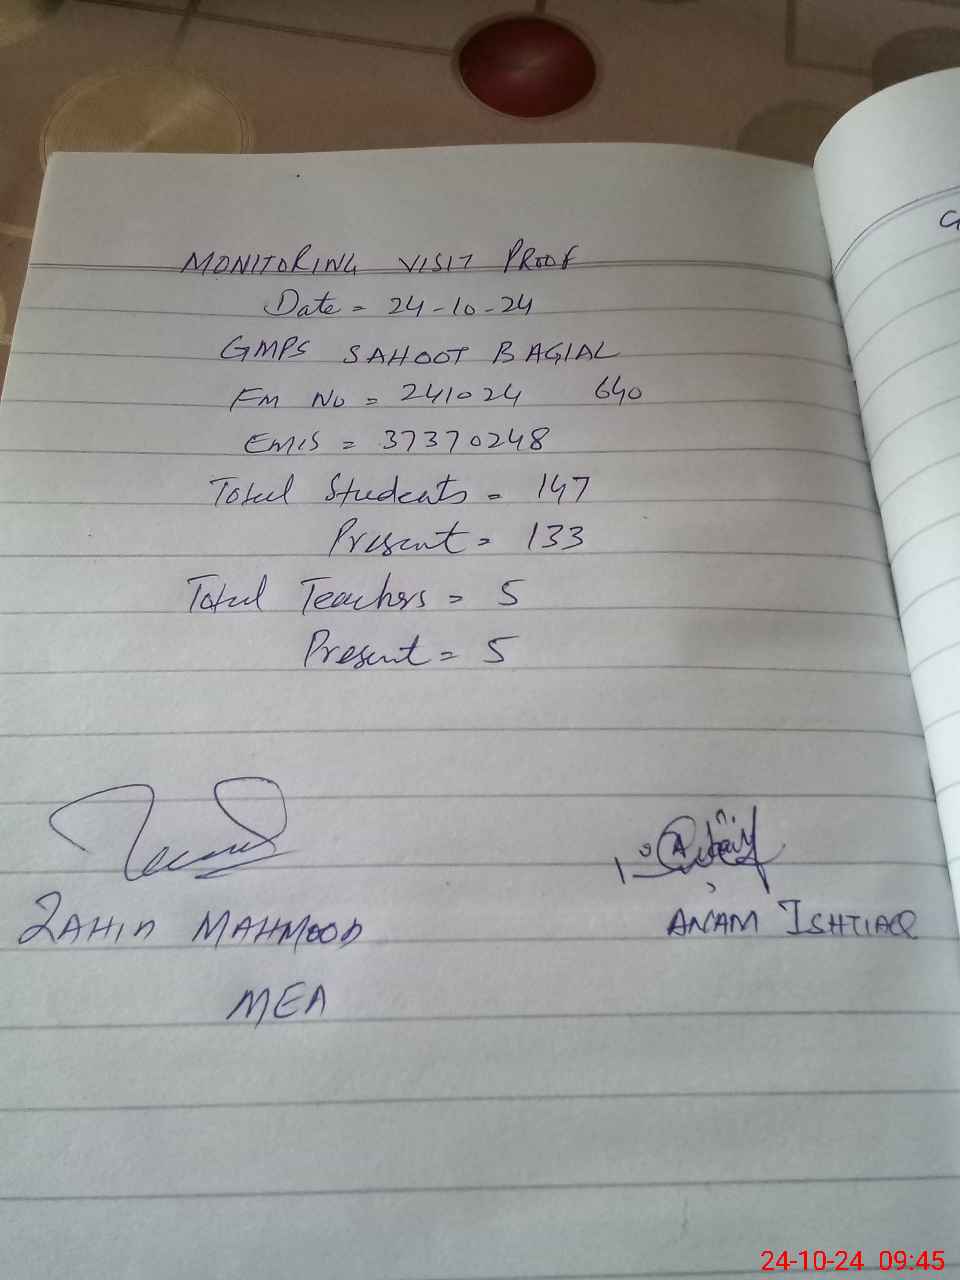 MONITORING VISIT PROOF
Date = 24-10-24
GMPS SAHOOT BAGIAL
FM No = 241024 640
EMIS = 37370248
Total Students = 147
Present = 133
Total Teachers = 5
Present = 5
ZAHID MAHMOOD
ANAM ISHTIAQ
MEA
24-10-24 09:45